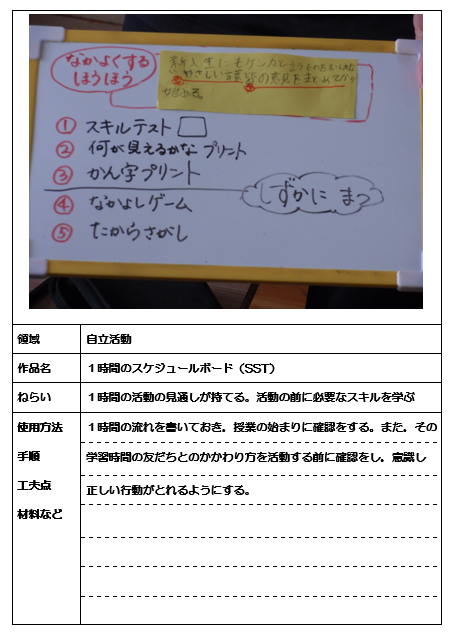 なかよくする
ほうほう
やさしい言葉
① スキルテスト
② 何が見えるかな プリント
③ かん字プリント
しずかに まつ
④ なかよしゲーム
⑤ たからさがし
領域 自立活動
作品名 １時間のスケジュールボード（SST）
ねらい １時間の活動の見通しが持てる。活動の前に必要なスキルを学ぶ
使用方法 １時間の流れを書いておき。授業の始まりに確認をする。また。その
手順 学習時間の友だちとのかかわり方を活動する前に確認をし。意識し
工夫点 正しい行動がとれるようにする。
材料など